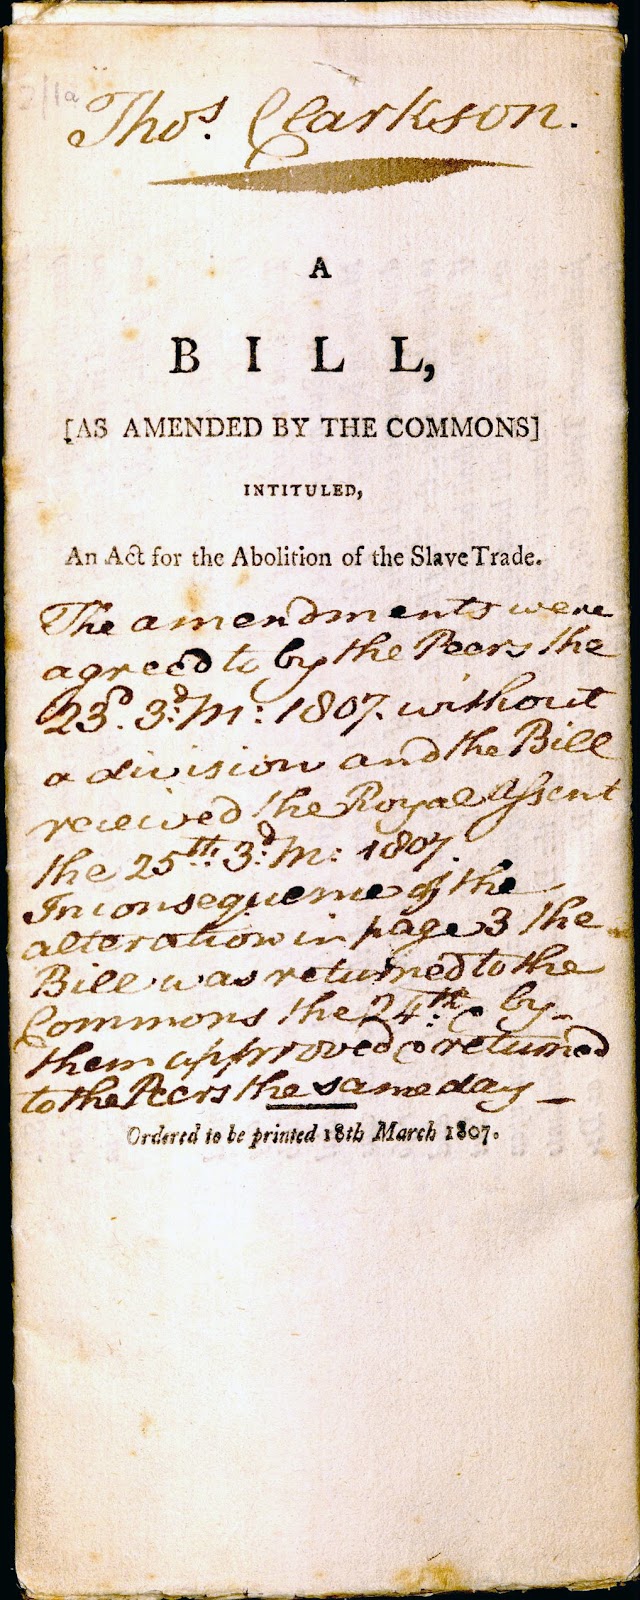 2/1a
Thos. Clarkson.
A
BILL,
[AS AMENDED BY THE COMMONS]
INTITULED,
An Act for the Abolition of the Slave Trade.
The amendments were
agreed to by the Peers the
23d. 3d: M: 1807. without
a division and the Bill
received the Royal Assent
the 25th: 3d: M: 1807.
In consequence of the
alteration in page 3 the
Bill was returned to the
Commons the 24th: & by
them approved & returned
to the Peers the same day
Ordered to be printed 18th March 1807.